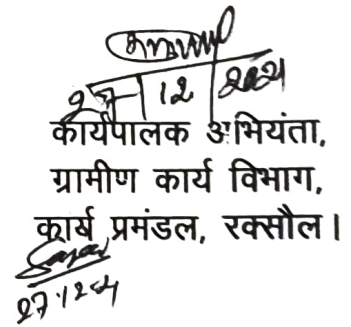 27 12 2024
कार्यपालक अभियंता,
ग्रामीण कार्य विभाग,
कार्य प्रमंडल, रक्सौल।
27.12.24